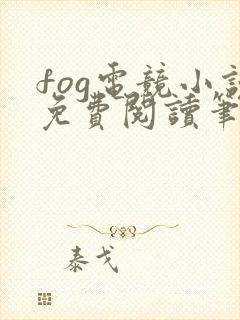 fog電競小說
免費閱讀筆
泰戈